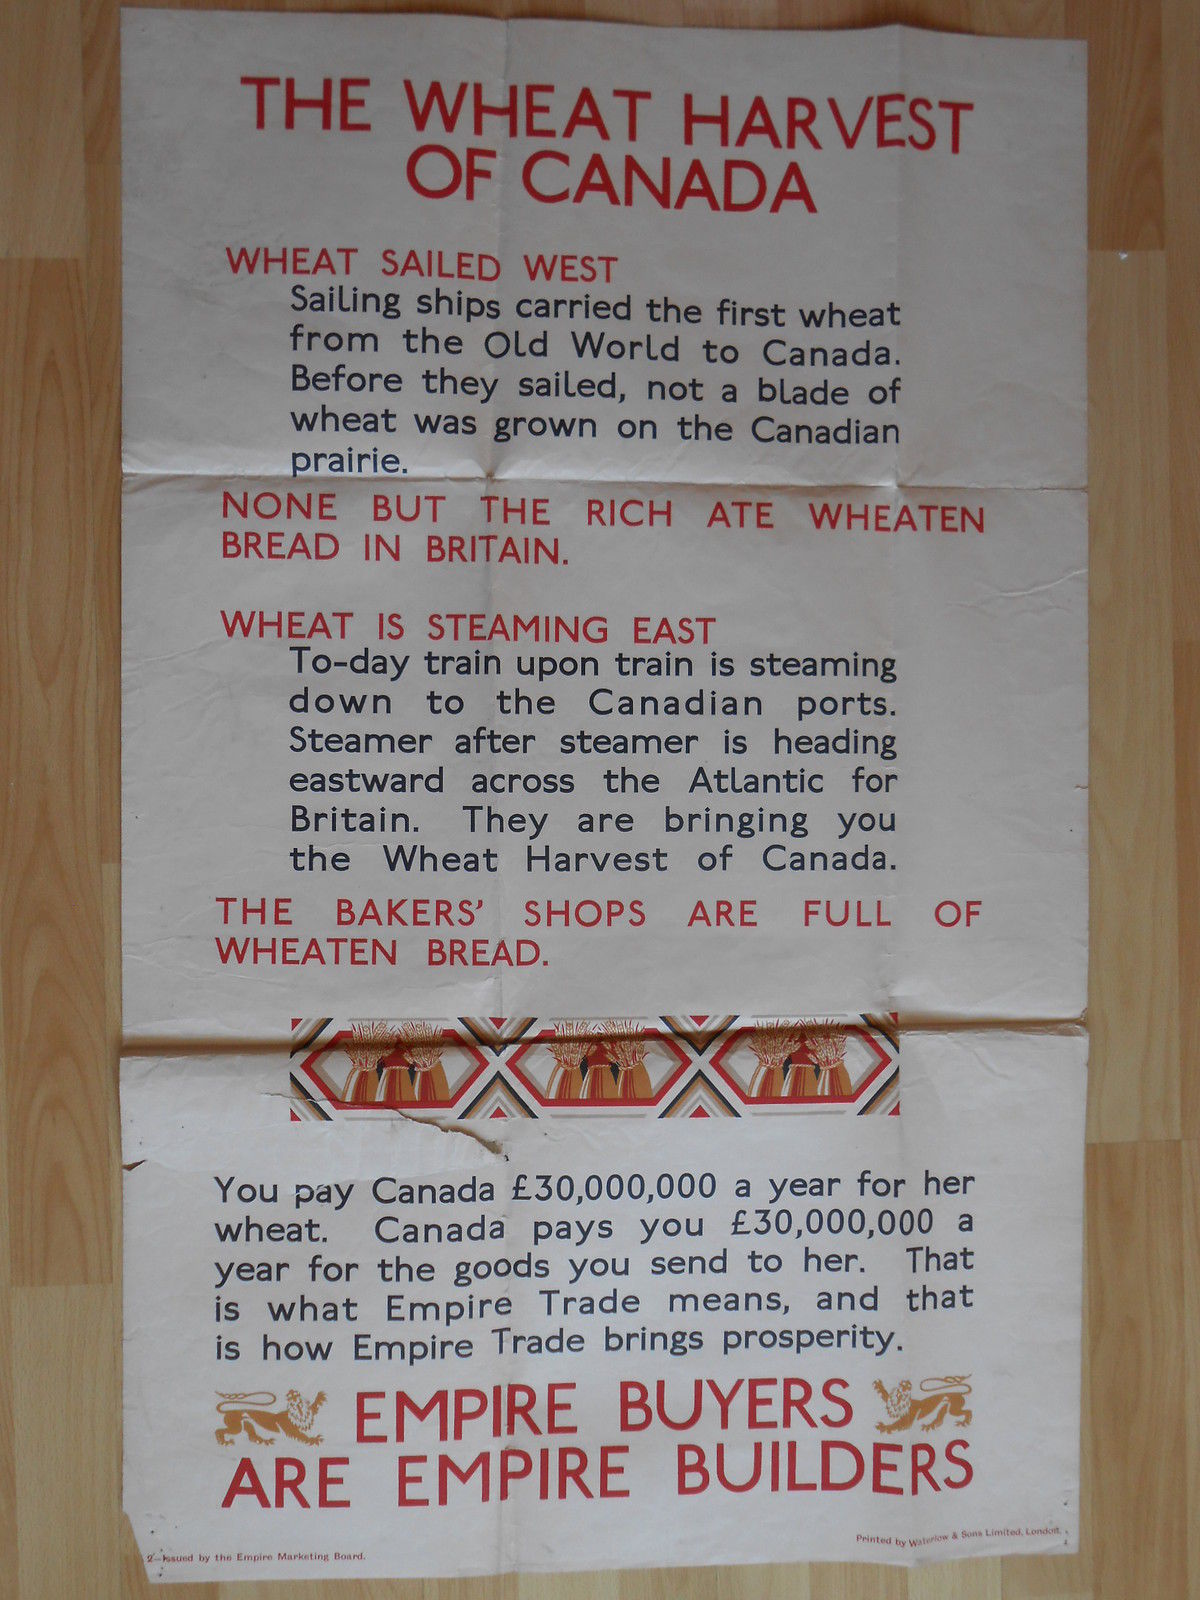 THE WHEAT HARVEST
OF CANADA
WHEAT SAILED WEST
Sailing ships carried the first wheat
from the Old World to Canada.
Before they sailed, not a blade of
wheat was grown on the Canadian
prairie.
NONE BUT THE RICH ATE WHEATEN
BREAD IN BRITAIN.
WHEAT IS STEAMING EAST
To-day train upon train is steaming
down to the Canadian ports.
Steamer after steamer is heading
eastward across the Atlantic for
Britain. They are bringing you
the Wheat Harvest of Canada.
THE BAKERS' SHOPS ARE FULL OF
WHEATEN BREAD.
You pay Canada £30,000,000 a year for her
wheat. Canada pays you £30,000,000 a
year for the goods you send to her. That
is what Empire Trade means, and that
is how Empire Trade brings prosperity.
EMPIRE BUYERS
ARE EMPIRE BUILDERS
2—Issued by the Empire Marketing Board.
Printed by Waterlow & Sons Limited, London.